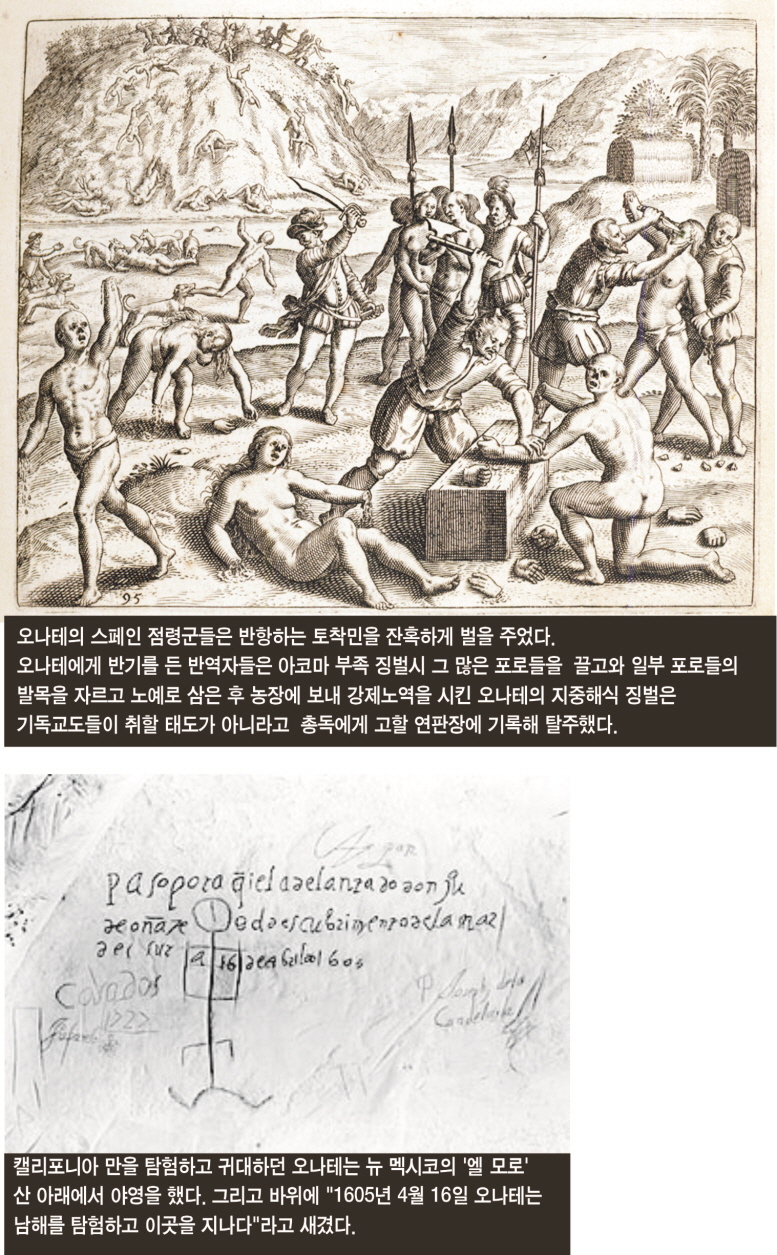 95
오나테의 스페인 점령군들은 반항하는 토착민을 잔혹하게 벌을 주었다.
오나테에게 반기를 든 반역자들은 아코마 부족 징벌시 그 많은 포로들을 끌고와 일부 포로들의
발목을 자르고 노예로 삼은 후 농장에 보내 강제노역을 시킨 오나테의 지중해식 징벌은
기독교도들이 취할 태도가 아니라고 총독에게 고할 연판장에 기록해 탈주했다.
pasopora q̃iel adelantado don Ju
de oñate del descubrimento de la mar
del sur a 16 de abril de 1605
캘리포니아 만을 탐험하고 귀대하던 오나테는 뉴 멕시코의 '엘 모로'
산 아래에서 야영을 했다. 그리고 바위에 "1605년 4월 16일 오나테는
남해를 탐험하고 이곳을 지나다"라고 새겼다.